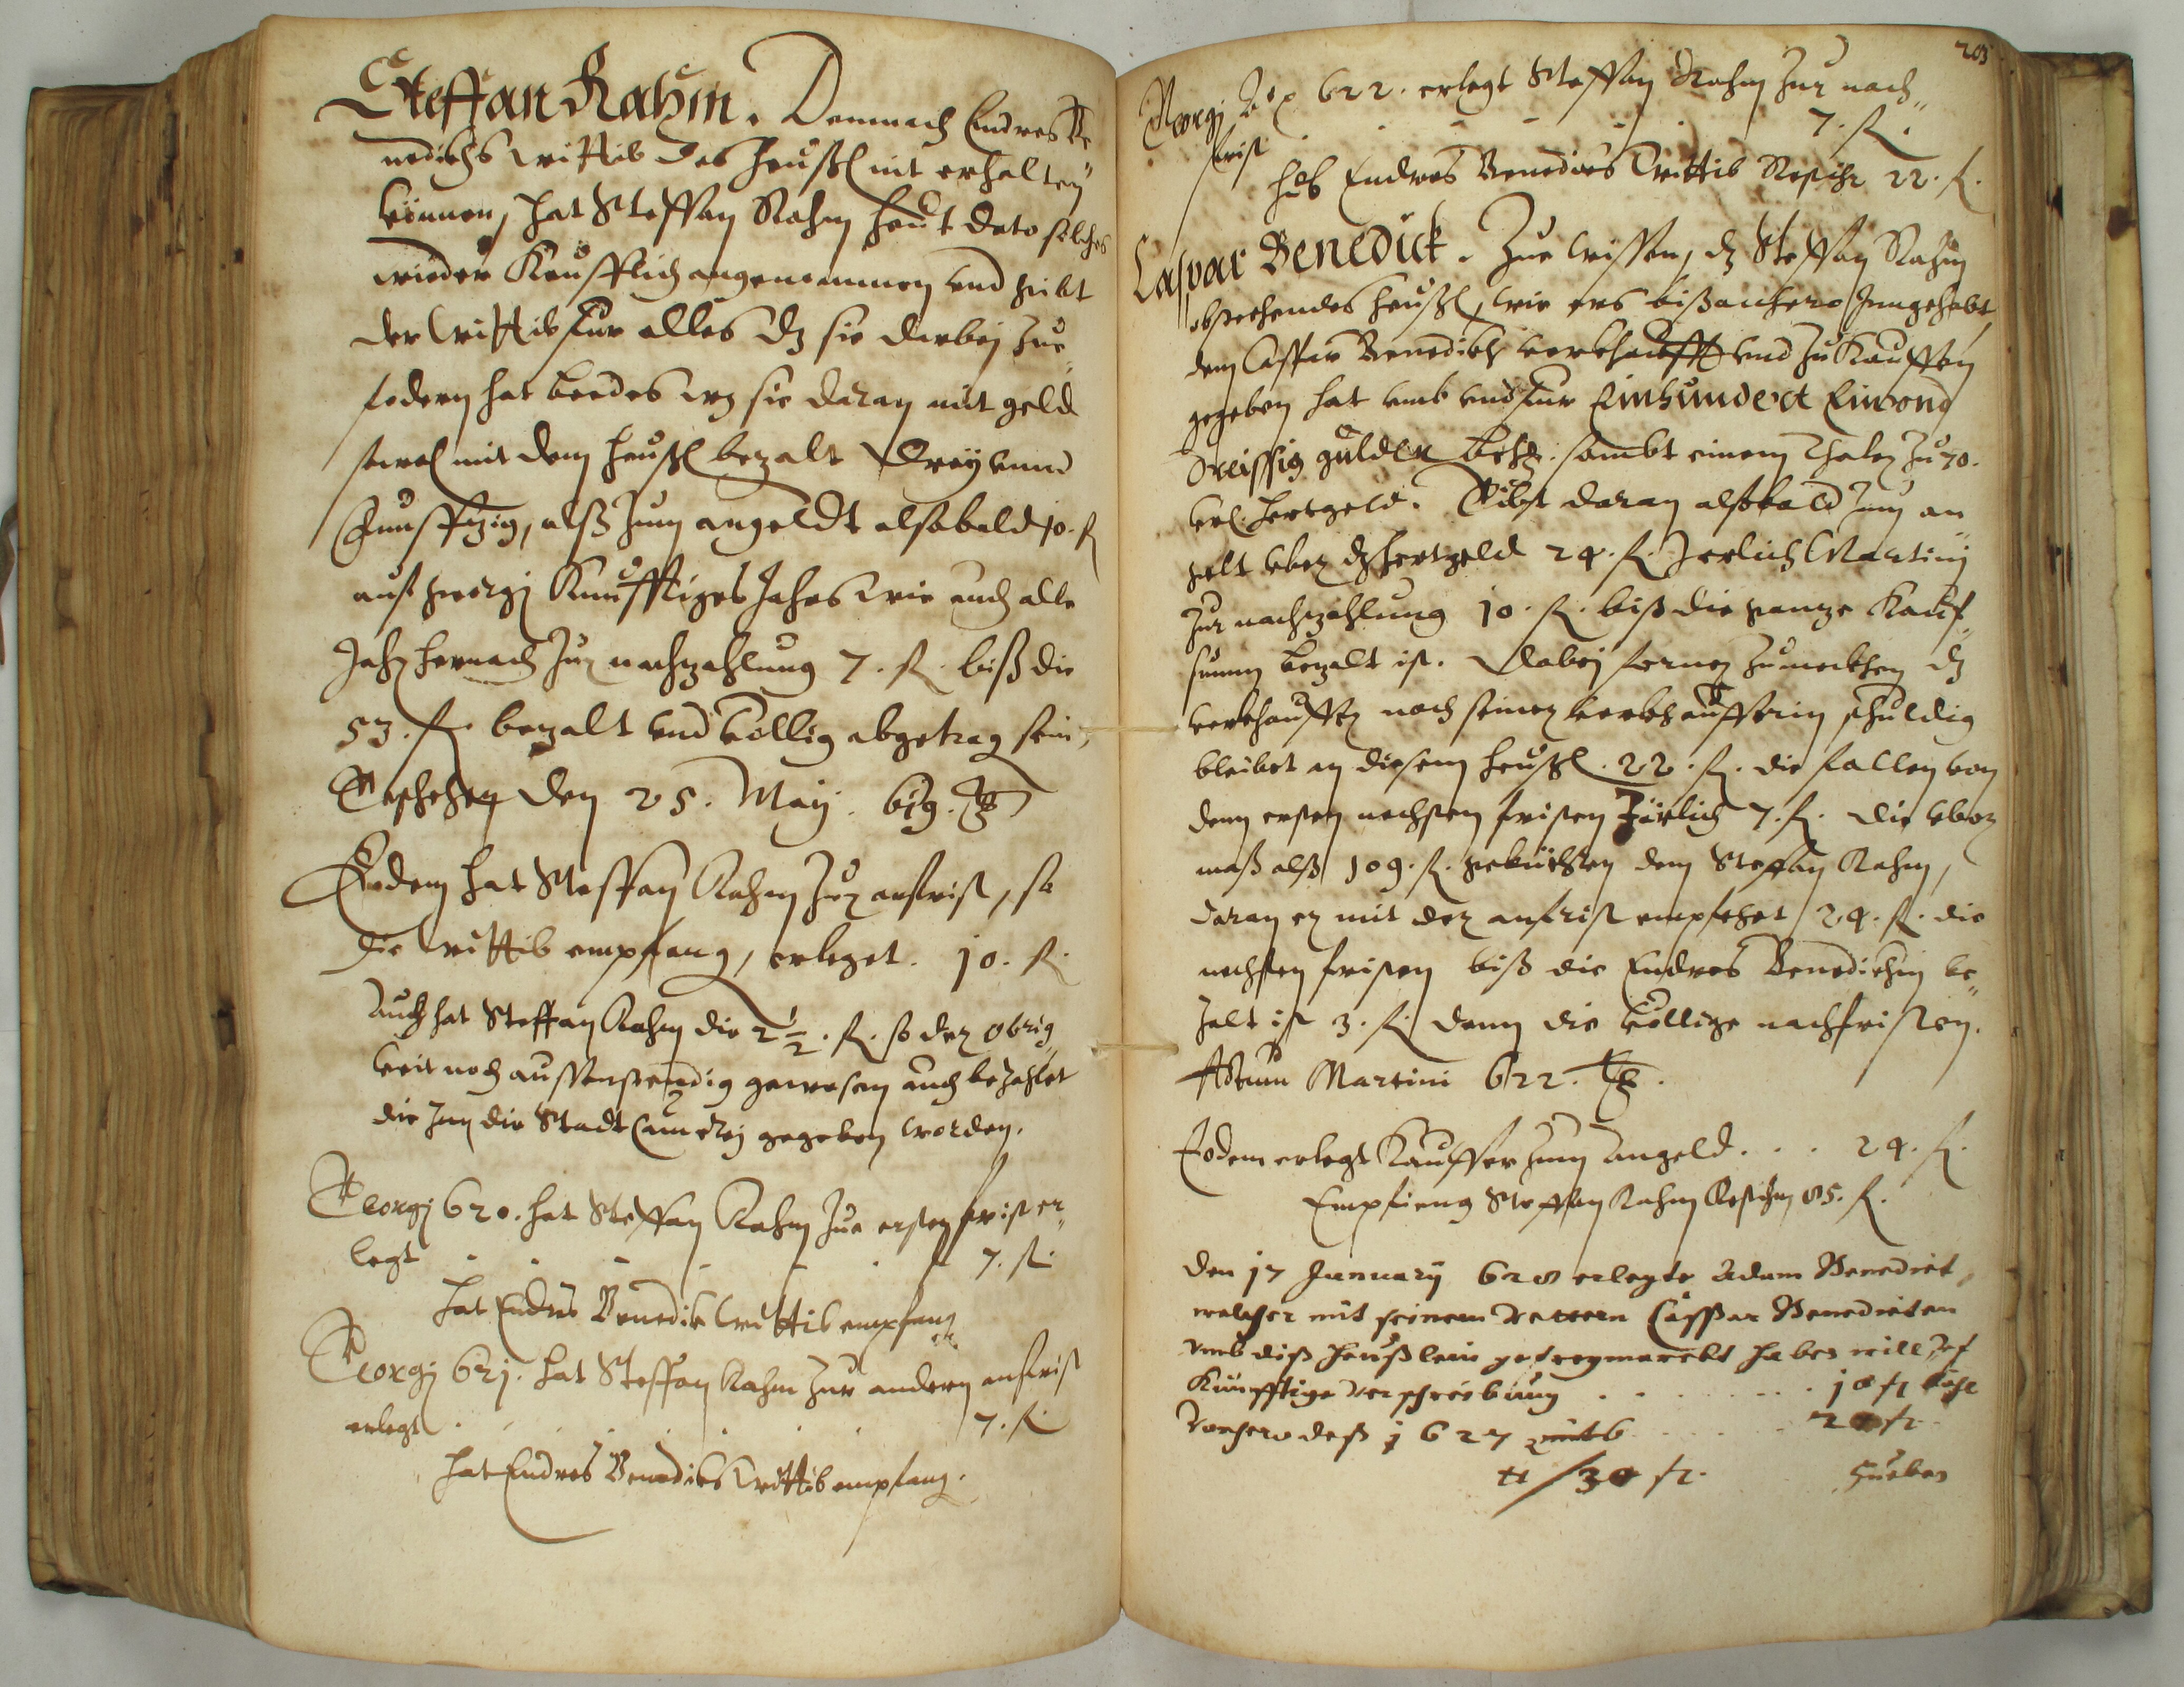 Steffan Rahm. Demnach Endres Be
nedickhs Wittib das Heußl nit erhalten
können, hat Steffan Rahm heut dato solches
wieder Keufflich angenommen vnd gibt
der Wittib für alles dz sie darbej zue
fodern hat beedes wz sie daran mit geld
sowol mit dem Heußl bezalt Dreÿ vnnd
Funffzig, alß zum angeldt alßbald 10. fl
auf Georgj Kunfftiges Jahrs wie auch alle
Jahr hernach zur nachzahlung 7. fl. biß die
53. fl. bezalt vnd völlig abgetrag sein,
Geschehen den 25. Maij. 619.
Eodem hat Steffan Rahm zur anfrist, so
die Wittib empfang, erleget. 10. fl.
Auch hat Steffan Rahm die 2 1/2. fl. so der Obrig
keit noch aussenstendig gewesen auch bezahlet
die Inn die Stadt Camerej gegeben worden.
Georgj 620. hat Steffan Rahm zue ersten frist er
legt 7. fl.
hat Endres Benedik Wittib empfang
Georgj 621. hat Steffan Rahm zur andern anfrist
erlegt 7. fl.
hat Endres Benedicks Wittib empfang.
203
Georgj 622. erlegt Steffan Rahm zur nach
frist 7. fl.
hub Endres Benedicts Wittib 22. fl.
Caspar Benedict. Zue wissen, dz Steffan Rahm
obstehendes Heußl, wie ers bißanhero Inngehabt
dem Caspar Benedickh verkhaufft vnd zu Kauffen
gegeben hat vmb vnd für Einhundert Einvnd
dreissig gulden Beh. sambt einem Thaler zu 70.
herdtgeld. Gibt daran alßbald zum an
gelt vber dz herdtgeld 24. fl. Jerlich Martinj
zur nachzahlung 10. fl. biß die gantze Kauf
summ bezalt ist. Dabej ferner zumerkhen dz
verkhauffer noch seiner verkhaufferin schuldig
bleibet an diesem Heußl. 22. fl. die fallen von
dem ersten nechsten fristen Järlich 7. fl. die vber
maß alß 109. fl. gebürthen dem Steffan Rahm,
daran er mit der anfrist empfehet 24. fl. die
nechsten fristen biß die Endres Benedickhin be
zalt ist 3. fl. dann die völlige nachfristen.
Actum Martini 622.
Eodem erlegt Kauffer zum Angeld . . . 24. fl.
Empfieng Steffan Rahm 85. fl.
Den 17 Januarij 628 erlegte Adam Benedict,
welcher mit seinem Vettern Casspar Benedicten
vmb diß Heußlein gefreymarckt haben will, vf
Künfftige verschreibung . . . . . . 10 fl
vorhero deß 1627 . . . 20 fl.
30 fl.